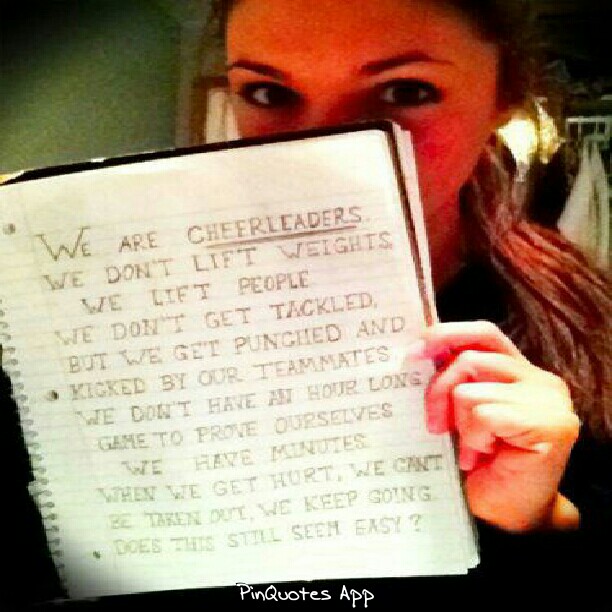 WE ARE CHEERLEADERS.
WE DON'T LIFT WEIGHTS,
WE LIFT PEOPLE
WE DON'T GET TACKLED,
BUT WE GET PUNCHED AND
KICKED BY OUR TEAMMATES
WE DON'T HAVE AN HOUR LONG
GAME TO PROVE OURSELVES
WE HAVE MINUTES.
WHEN WE GET HURT, WE CAN'T
BE TAKEN OUT, WE KEEP GOING.
DOES THIS STILL SEEM EASY?
PinQuotes App